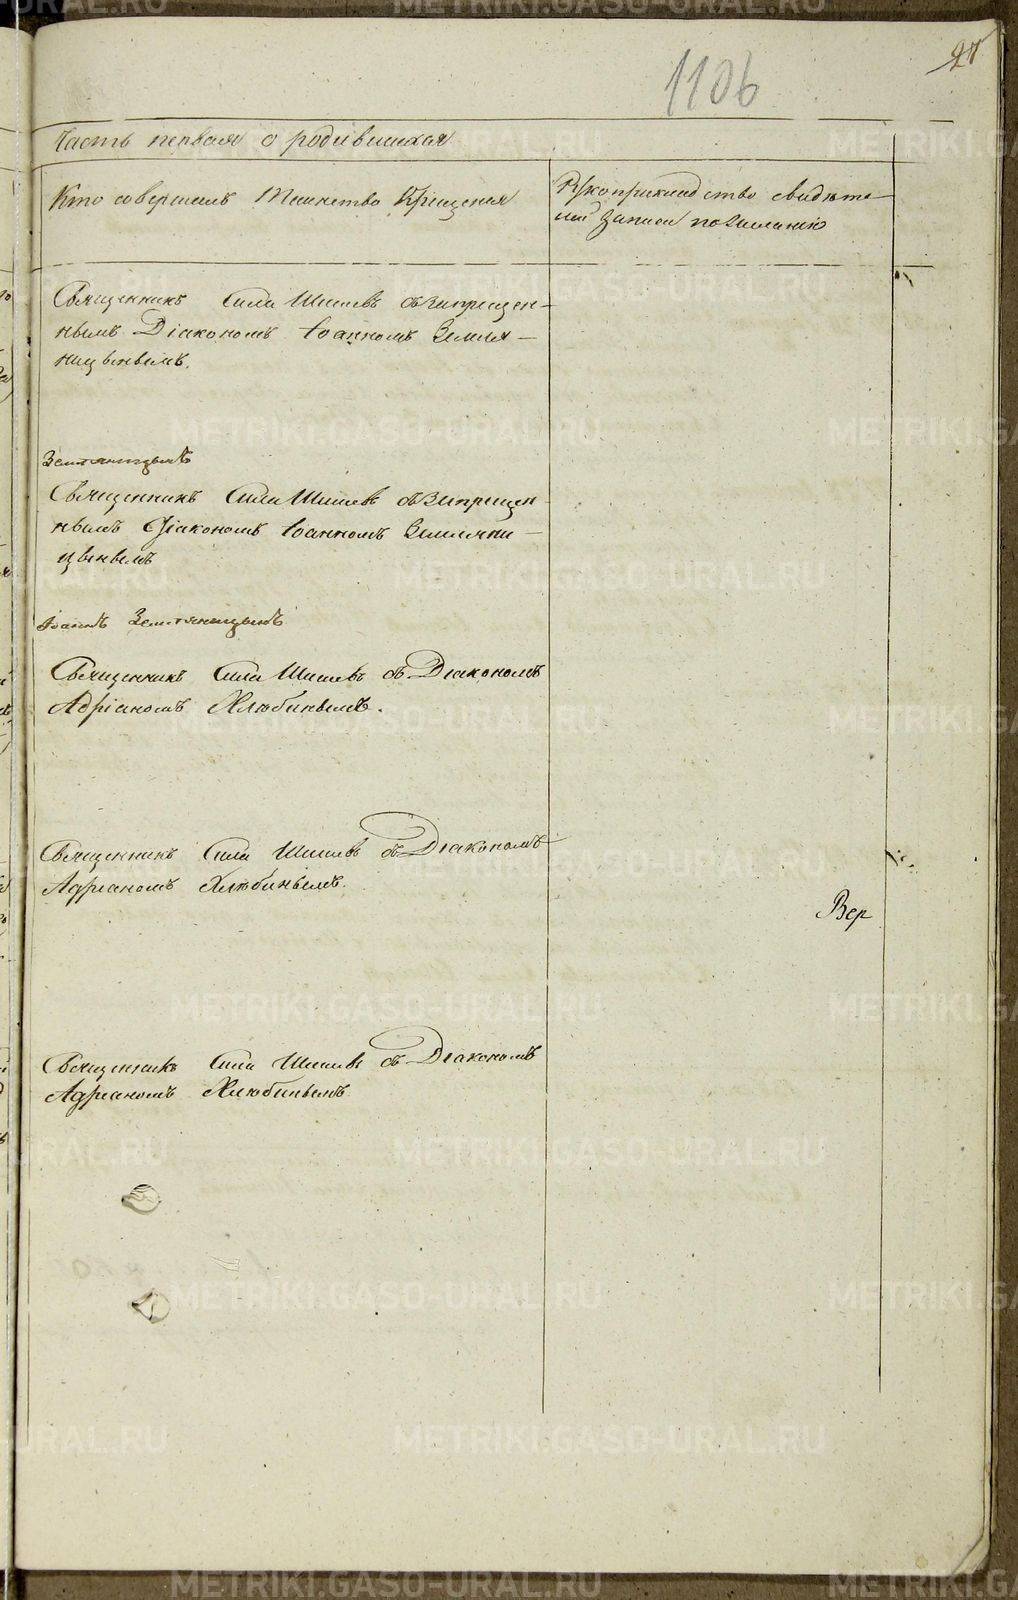 1106
97
Часть первая о родившихся
Кто совершалъ Таинство Крещения
Рукоприкладство свидѣте-
лей записи по желанію
Священникъ Сила Шишевъ съ запрещен-
нымъ Діакономъ Іоанномъ Земля-
ницынымъ.
Земляницынъ
Священникъ Сила Шишевъ съ запрещен-
нымъ Діакономъ Іоанномъ Земляни-
цынымъ
Іоаннъ Земляницынъ
Священникъ Сила Шишевъ съ Діакономъ
Адріаномъ Хлюбинымъ.
Священникъ Сила Шишевъ съ Діакономъ
Адрианомъ Хлюбинымъ.
Вер
Священникъ Сила Шишевъ съ Діакономъ
Адрианомъ Хлюбинымъ
METRIKI.GASO-URAL.RU